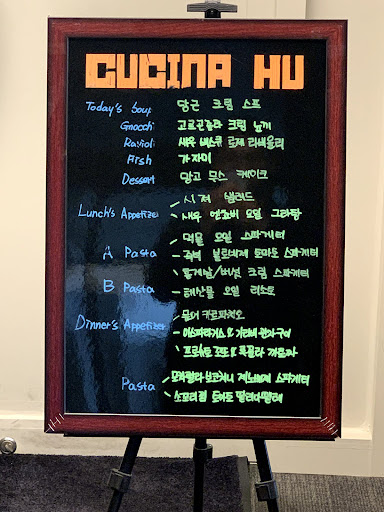 CUCINA HU
Today's Soup 당근 크림 스프
Gnocchi 고르곤졸라 크림 뇨끼
Ravioli 새우 비스큐 로제 라비올리
Fish 가자미
Dessert 망고 무스 케이크
Lunch's Appetizer 시저 샐러드
새우 엔초비 오일 그라탕
A Pasta 먹물 오일 스파게티
볼로네제 토마토 스파게티
꽃게살/버섯 크림 스파게티
B Pasta 해산물 오일 리조또
Dinner's Appetizer 문어 카르파치오
아스파라거스 & 가리비 관자구이
프로슈토 &
Pasta 모짜렐라 보코치니 제노베제 스파게티
토마토 딸리아딸레